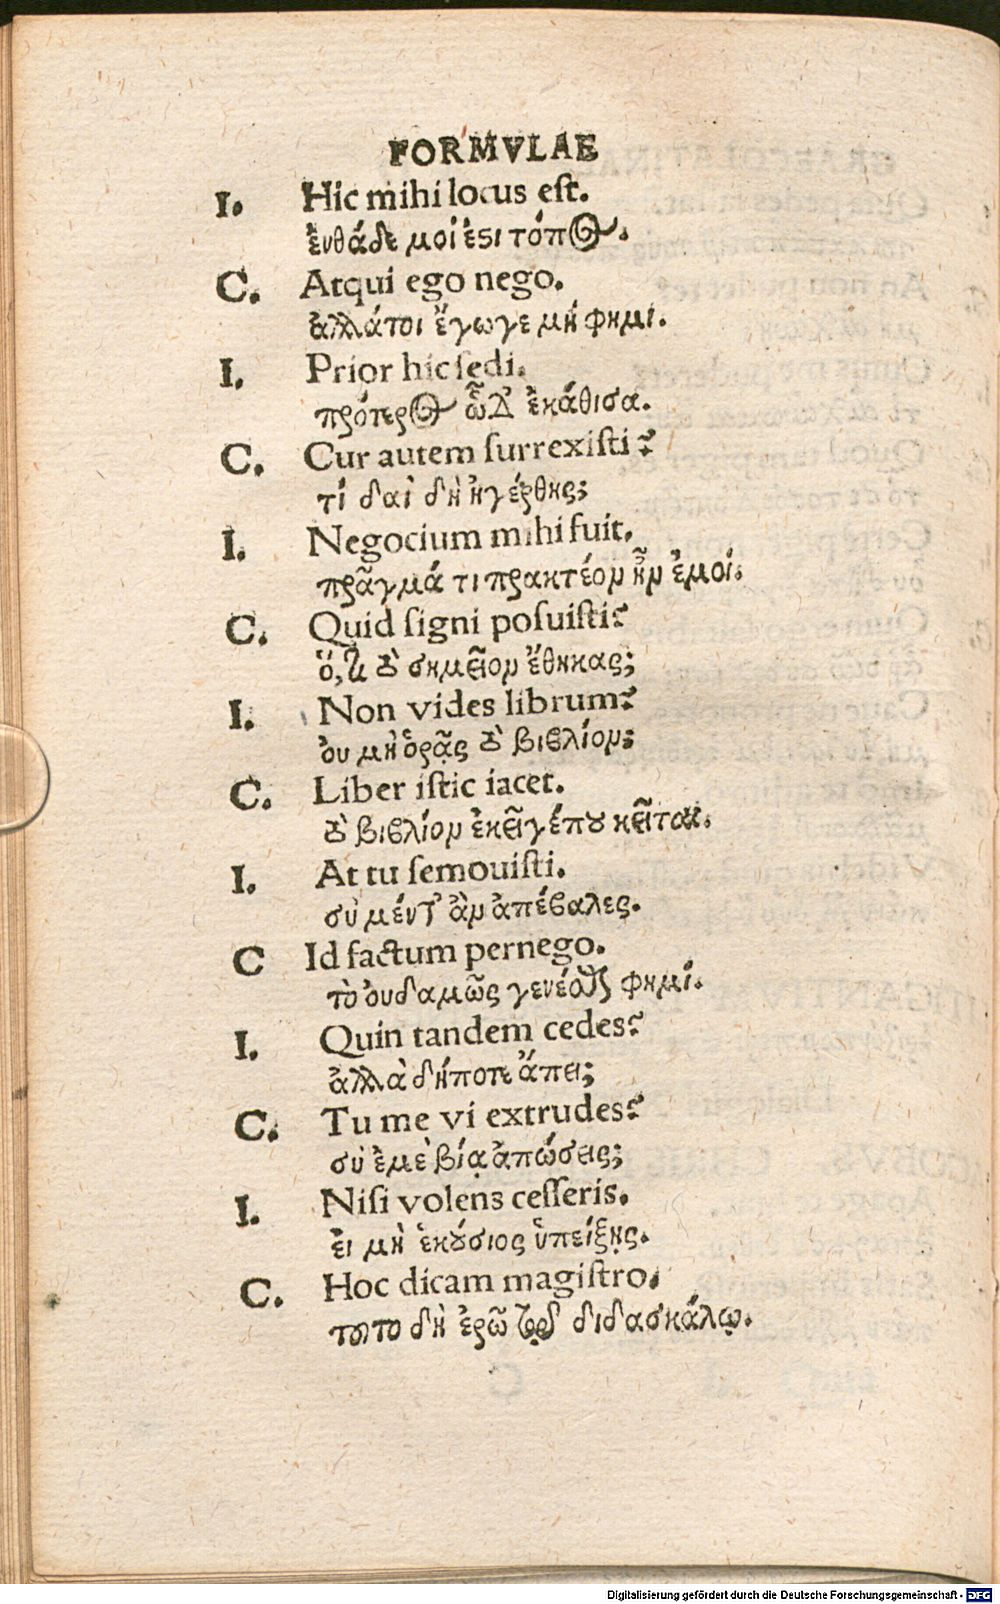 FORMVLAE
I. Hic mihi locus eſt.
ἐνθάδε μοί ἐϛι τόπος.
C. Atqui ego nego.
ἀλλάτοι ἔγωγε μή φημι.
I. Prior hic ſedi.
πρότερος ὧδ' ἐκάθισα.
C. Cur autem ſurrexiſti?
τί δαὶ δὴ ἠγέρθης;
I. Negocium mihi fuit.
πρᾶγμά τι πρακτέον ἦν ἐμοί.
C. Quid ſigni poſuiſti?
ὅ,τι τὸ σημεῖον ἔθηκας;
I. Non vides librum?
ὀυ μὴ ὁρᾷς τὸ βιβλίον;
C. Liber iſtic iacet.
τὸ βιβλίον ἐκεῖ γέπȣ κεῖται.
I. At tu ſemouiſti.
σὺ μέντ' ἂν ἀπέβαλες.
C Id factum pernego.
τὸ ὀυδαμῶς γενέσθαι φημί.
I. Quin tandem cedes?
ἀλλὰ δήποτε ἄπει;
C. Tu me vi extrudes?
σὺ ἐμὲ βίᾳ ἀπώσεις;
I. Niſi volens ceſſeris.
ἐι μὴ ἑκȣ́σιος ὑπείξῃς.
C. Hoc dicam magiſtro.
τοῦτο δὴ ἐρῶ τῷ διδασκάλῳ.
Digitalisierung gefördert durch die Deutsche Forschungsgemeinschaft - DFG